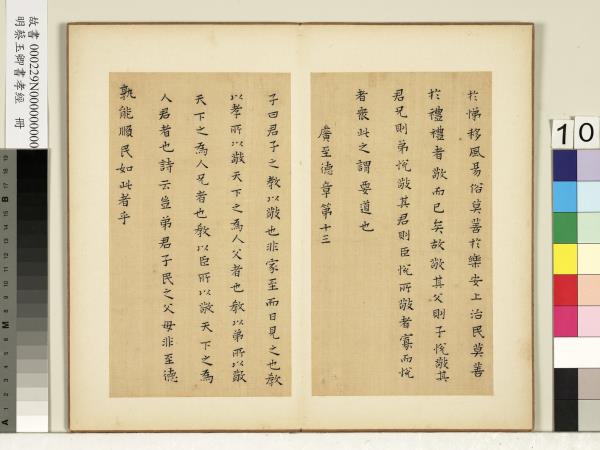 於悌移風易俗莫善於樂安上治民莫善
於禮禮者敬而已矣故敬其父則子悅敬其
君兄則弟悅敬其君則臣悅所敬者寡而悅
者衆此之謂要道也
廣至德章第十三
子曰君子之教以敬也非家至而日見之也教
以孝所以敬天下之為人父者也教以弟所以敬
天下之為人兄者也教以臣所以敬天下之為
人君者也詩云豈弟君子民之父母非至德
孰能順民如此者乎
故書 000229N000000000
明蔡玉卿書孝經 冊
10
A 1 2 3 4 5 6 M 8 9 10 11 12 13 14 15 B 17 18 19